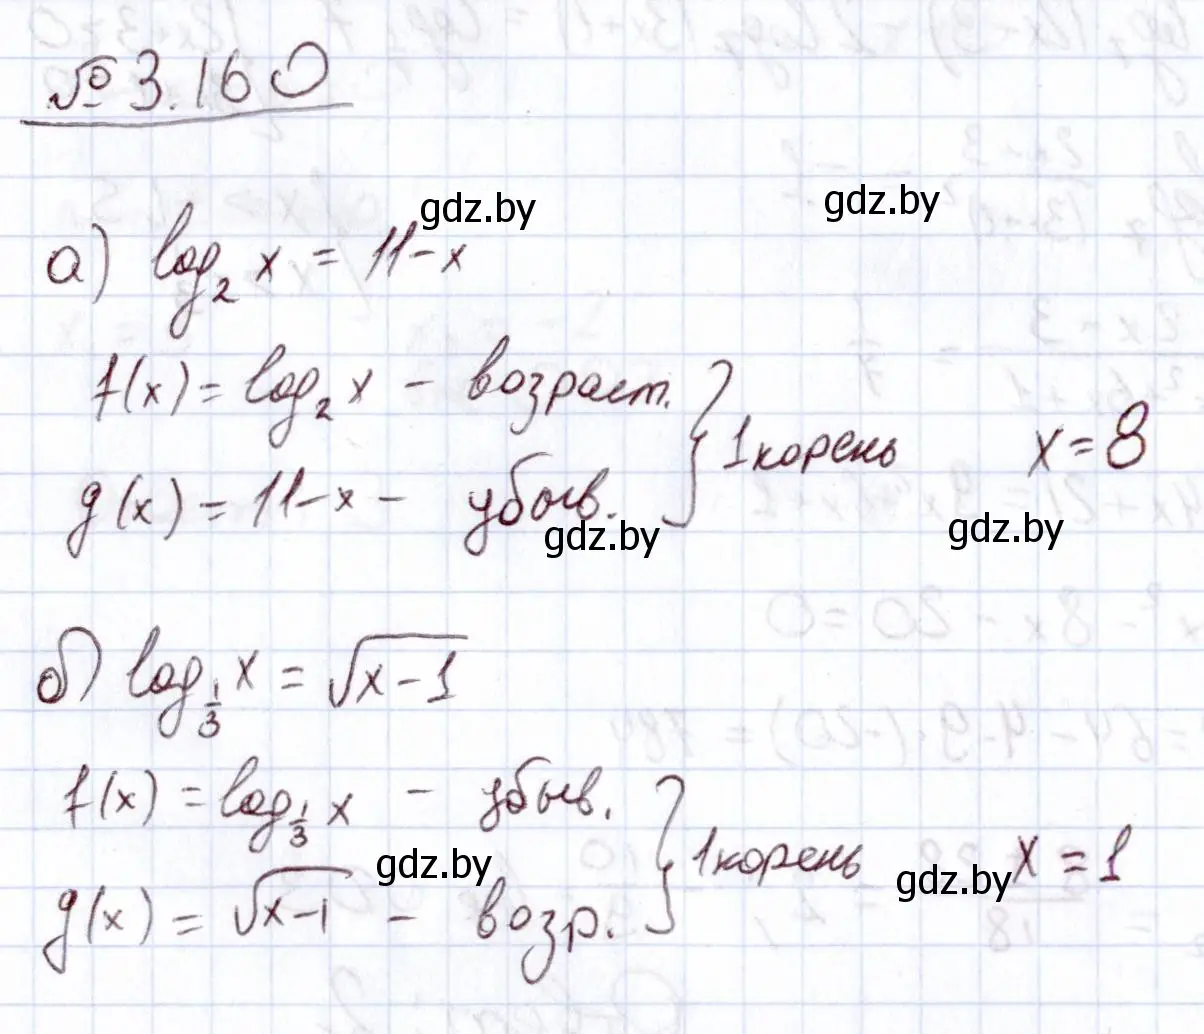 № 3.160
gdz.by
gdz.by
а) log₂ x = 11 - x
f(x) = log₂ x - возраст.
g(x) = 11 - x - убыв.
} 1 корень x = 8
gdz.by
gdz.by
б) log_{1/3} x = √(x - 1)
f(x) = log_{1/3} x - убыв.
g(x) = √(x - 1) - возр.
} 1 корень x = 1
gdz.by
gdz.by